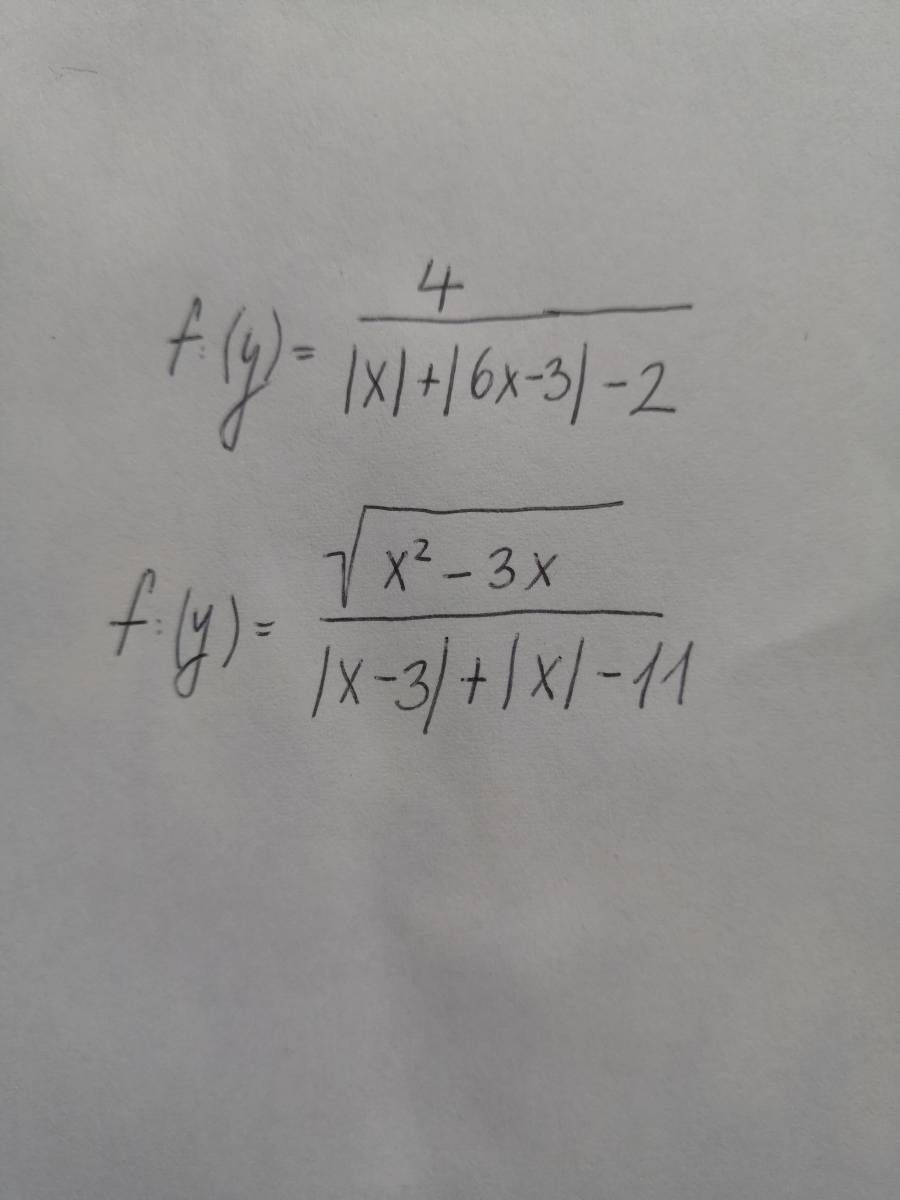 f:(y) = 4 / |x| + |6x-3| - 2
f:(y) = √(x² - 3x) / |x-3| + |x| - 11